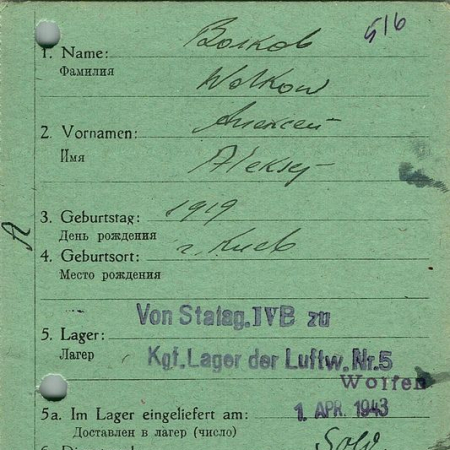 5/6
1. Name: Волков
Фамилия Wolkow
2. Vornamen: Алексей
Имя Aleksej
3. Geburtstag: 1919
День рождения
4. Geburtsort: г. Киев
Место рождения
Von Stalag.IVB zu
5. Lager:
Лагер Kgf.Lager der Luftw.Nr.5
Wolfen
5a. Im Lager eingeliefert am: 1. APR. 1943
Доставлен в лагер (число)
Sold.